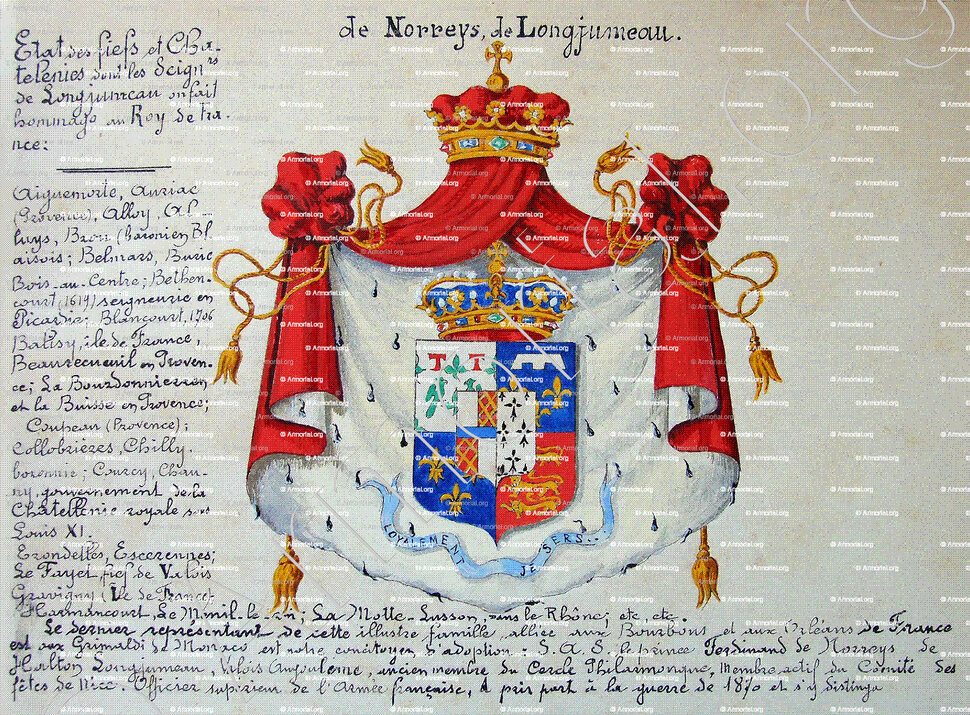 de Norreys, de Longjumeau.
Etat des fiefs et Cha-
telenies dont les Seignrs
de Longjumeau on fait
hommage au Roy de Fra-
nce:
Aiguemorte, Auriac
(Provence), Alloy, Al-
luys, Brou (baronie en Bl
aisois; Belmars, Buric
Bois-au-Centre; Bethen-
court (1619) seigneurie en
Picardie; Blancourt, 1706
Batisy, ile de France,
Beaurecueuil en Proven-
ce; La Bourdonnierren
et la Buisse en Provence;
Coubeau (Provence);
Collobrieres, Chilly.
boronnie; Courcy, Chau-
ny, gouvernement de la
Chatellenie royale sous
Louis XI.
Erondelles, Escerennes;
Le Fayet, fief de Valois
Gravigny (Ile de France)
Harmancourt, Le Mesnil-le- La Motte-Lusson, dans le Rhône; etc etc.
Le dernier représentant de cette illustre famille, alliée aux Bourbons et aux Orléans de France
est aux Grimaldi de Monaco est notre concitoyen d'adoption: S.A.S. le prince Ferdinand de Norreys de
Halton Longjumeau, Valois Angouleme, ancien membre du Cercle Philarmonique, Membre actif du Comité des
fêtes de Nice. Officier supérieur de l'Armée française, A pris part à la guerre de 1870 et s'y distingua
LOYALEMENT JE SERS..
© Armorial.org